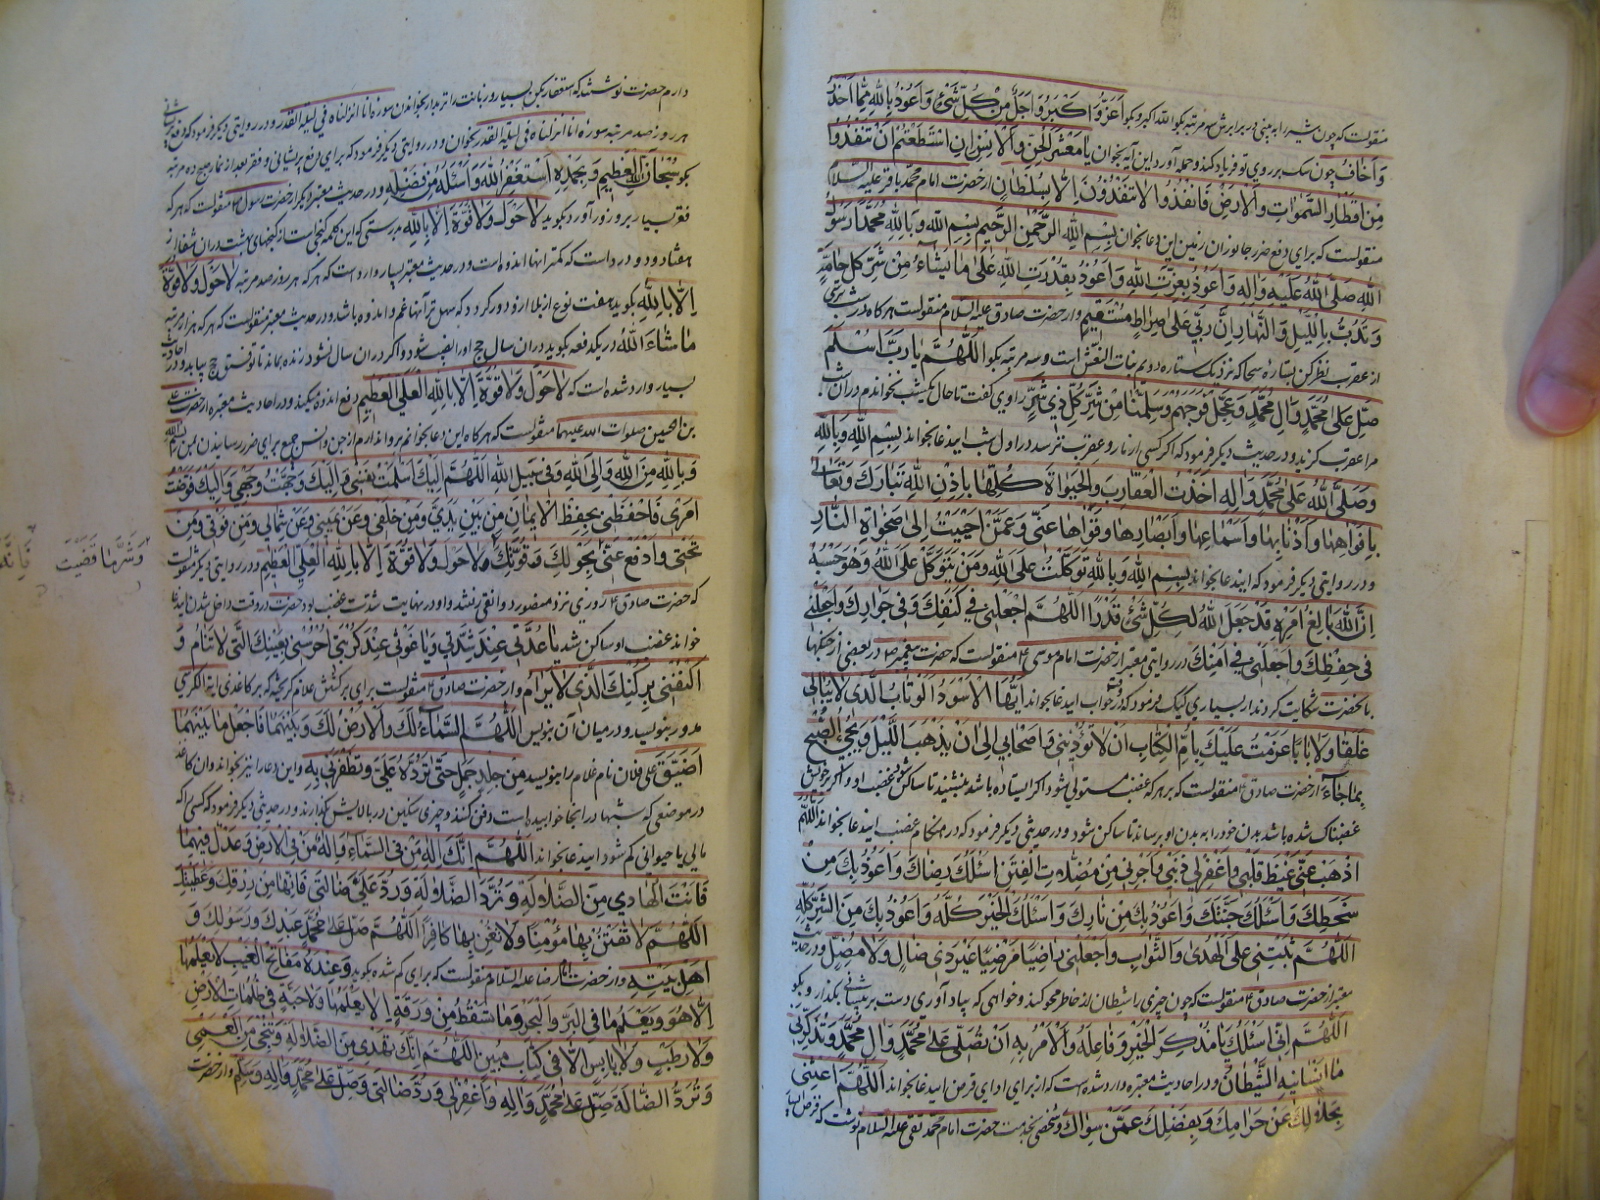 منقولست که چون شیر را به بینی در برابرش سه مرتبه بکو الله اکبر و بکو اَعَزُّ وَ اَکْبَرُ وَ اَجَلُّ مِنْ کُلِّ شَیْءٍ وَ اَعُوذُ بِاللهِ مِمَّا اَخٰذُ
وَ اَخافُ چون سک بر روی تو فریاد کند و حمله آورد این آیه بخوان یٰا مَعْشَرَ الْجِنِّ وَ الْاِنْسِ اِنِ اسْتَطَعْتُمْ اَنْ تَنْفُذُوا
مِنْ اَقْطارِ السَّمٰوٰاتِ وَ الْاَرْضِ فَانْفُذُوا لٰا تَنْفُذُونَ اِلّٰا بِسُلْطٰانٍ از حضرت امام محمد باقر علیه السلام
منقولست که برای دفع ضرر جانوران زمین این دعا بخوان بِسْمِ اللهِ الرَّحْمٰنِ الرَّحیمِ بِسْمِ اللهِ وَ بِاللهِ مُحَمَّدٌ رَسُولُ
اللهِ صَلَّی اللهُ عَلَیْهِ وَ اٰلِهِ وَ اَعُوذُ بِعِزَّتِ اللهِ وَ اَعُوذُ بِقُدْرَتِ اللهِ عَلیٰ مٰا یَشٰاءُ مِنْ شَرِّ کُلِّ هٰامَّةٍ
وَ تَدُبُّ بِاللَّیْلِ وَ النَّهٰارِ اِنَّ رَبِّی عَلیٰ صِرٰاطٍ مُسْتَقیمٍ و از حضرت صادق علیه السلام منقولست هر کاه در شب بترسی
از عقرب نظر کن بستاره سها که نزدیک ستاره دویم بنات النعش است و سه مرتبه بکو اَللّٰهُمَّ یٰا رَبَّ اَسْلَمَ
صَلِّ عَلیٰ مُحَمَّدٍ وَ اٰلِ مُحَمَّدٍ وَ عَجِّلْ فَرَجَهُمْ وَ سَلِّمْنٰا مِنْ شَرِّ کُلِّ ذی شَرٍّ راوی کفت تا حال یکشب نخواندم و در آن شب
مرا عقرب کزید و در حدیث دیکر فرمود که اکر کسی از مار و عقرب ترسد در اول شب اینداعا بخواند بِسْمِ اللهِ وَ بِاللهِ
وَ صَلَّی اللهُ عَلیٰ مُحَمَّدٍ وَ اٰلِهِ اَخَذْتُ الْعَقٰارِبَ وَ الْحَیّٰاةَ کُلَّهٰا بِاِذْنِ اللهِ تَبٰارَکَ وَ تَعٰالیٰ
بِاَفْوٰاهِهٰا وَ اَذْنٰابِهٰا وَ اَسْمٰاعِهٰا وَ اَبْصٰارِهٰا وَ قُوٰاهٰا عَنّی وَ عَمَّنْ اَحْبَبْتُ اِلیٰ ضَحْوَةِ النَّهٰارِ
و در روایتی دیکر فرمود که ایندعا بخواند بِسْمِ اللهِ وَ بِاللهِ تَوَکَّلْتُ عَلَی اللهِ وَ مَنْ یَتَوَکَّلْ عَلَی اللهِ فَهُوَ حَسْبُهُ
اِنَّ اللهَ بٰالِغُ اَمْرِهِ قَدْ جَعَلَ اللهُ لِکُلِّ شَیْءٍ قَدْرًا اَللّٰهُمَّ اجْعَلْنی فی کَنَفِکَ وَ فی جِوٰارِکَ وَ اجْعَلْنی
فی حِفْظِکَ وَ اجْعَلْنی فی اَمْنِکَ در روایتی معتبر از حضرت امام موسی منقولست که حضرت پیغمبر در بعضی از جنکها
بانحضرت شکایت کردند از بسیاری کیک فرمود که در وقت خواب ایندعا بخواند اَیُّهَا الْاَسْوَدُ الْوَثّٰابُ الَّذی لٰا یُبٰالی
غَلَقًا وَ لٰا بٰابًا عَزَمْتُ عَلَیْکَ بِاُمِّ الْکِتٰابِ اَنْ لٰا تُؤْذِیَنی وَ اَصْحٰابی اِلیٰ اَنْ یَذْهَبَ اللَّیْلُ وَ یَجیءَ الصُّبْحُ
بِمٰا جٰاءَ از حضرت صادق منقولست که بر هر که غضب مستولی شود اکر ایستاده باشد بنشیند تا ساکن شود غضب او و اکر بر خویش
غضبناک شده باشد بدن خود را به بدن او برساند تا ساکن شود و در حدیثی دیکر فرمود که در هنکام غضب ایندعا بخواند اَللّٰهُمَّ
اَذْهِبْ عَنّی غَیْظَ قَلْبی وَ اغْفِرْ لی ذَنْبی وَ اَجِرْنی مِنْ مُضِلّٰاتِ الْفِتَنِ اَسْئَلُکَ رِضٰاکَ وَ اَعُوذُ بِکَ مِنْ
سَخَطِکَ وَ اَسْئَلُکَ جَنَّتَکَ وَ اَعُوذُ بِکَ مِنْ نٰارِکَ وَ اَسْئَلُکَ الْخَیْرَ کُلَّهُ وَ اَعُوذُ بِکَ مِنَ الشَّرِّ کُلِّهِ
اَللّٰهُمَّ ثَبِّتْنی عَلَی الْهُدیٰ وَ الثَّوٰابِ وَ اجْعَلْنی رٰاضِیًا مَرْضِیًّا غَیْرَ ذی ضٰالٍّ وَ لٰا مُضِلٍّ و در حدیث
معتبر از حضرت صادق منقولست که چون چیزی را شیطان از خاطر محو کند و خواهی که بیاد آوری دست بر پیشانی بکذار و بکو
اَللّٰهُمَّ اِنّی اَسْئَلُکَ یٰا مُذَکِّرَ الْخَیْرِ وَ فٰاعِلَهُ وَ الْاٰمِرَ بِهِ اَنْ تُصَلِّیَ عَلیٰ مُحَمَّدٍ وَ اٰلِ مُحَمَّدٍ وَ تُذَکِّرَنی
مٰا اَنْسٰانیهِ الشَّیْطٰانُ و در احادیث معتبره وارد شده است که از برای ادای قرض ایندعا بخواند اَللّٰهُمَّ اَغْنِنی
بِحَلٰالِکَ عَنْ حَرٰامِکَ وَ بِفَضْلِکَ عَمَّنْ سِوٰاکَ و شخصی بخدمت حضرت امام محمد تقی علیه السلام نوشت که قرض بسیار
دارم حضرت نوشتند که استغفار بکن بسیار و زبانت را تر بدار بخواندن سوره انا انزلناه فی لیلة القدر و در روایتی دیکر فرمود که
هر روز صد مرتبه سورۀ انا انزلناه فی لیلة القدر بخوان و در روایتی دیکر فرمود که برای دفع پریشانی و فقر بعد از نماز صبح ده مرتبه
بکو سُبْحٰانَ اللهِ الْعَظیمِ وَ بِحَمْدِهِ اَسْتَغْفِرُ اللهَ وَ اَسْئَلُهُ مِنْ فَضْلِهِ و در حدیث معتبر دیکر از حضرت رسول منقولست که هر که
فقر بسیار بر او زور آورد بکوید لٰا حَوْلَ وَ لٰا قُوَّةَ اِلّٰا بِاللهِ بدرستی که این کلمه کنجی است از کنجهای بهشت در ان شفا از
هفتاد و دو درد است که کمتر انها اندوه است و در حدیث معتبر بسیار وارد است که هر که هر روز صد مرتبه لٰا حَوْلَ وَ لٰا قُوَّةَ
اِلّٰا بِاللهِ بکوید هفت نوع از بلا از و دور کردد که سهل تر آنها غم و اندوه باشد و در حدیث معتبر منقولست که هر که هزار مرتبه
مٰا شٰاءَ اللهُ در یکدفعه بکوید در ان سال حج او را نصیب شود و اکر در ان سال نشود زنده بماند تا توفیق حج بیابد و در احادیث
بسیار وارد شده است که لٰا حَوْلَ وَ لٰا قُوَّةَ اِلّٰا بِاللهِ الْعَلِیِّ الْعَظیمِ دفع اندوه میکند و در احادیث معتبره از حضرت علی
بن الحسین صلوات الله علیهما منقولست که هر کاه این دعا بخوانم پروا ندارم از جن و انس جمع برای ضرر رسانیدن من بسم الله
وَ بِاللهِ وَ مِنَ اللهِ وَ اِلَی اللهِ وَ فی سَبیلِ اللهِ اَللّٰهُمَّ اِلَیْکَ اَسْلَمْتُ نَفْسی وَ اِلَیْکَ وَجَّهْتُ وَجْهی وَ اِلَیْکَ فَوَّضْتُ
اَمْری فَاحْفَظْنی بِحِفْظِ الْاٖیمٰانِ مِنْ بَیْنِ یَدَیَّ وَ مِنْ خَلْفی وَ عَنْ یَمینی وَ عَنْ شِمٰالی وَ مِنْ فَوْقی وَ مِنْ
تَحْتی وَ ادْفَعْ عَنّی بِحَوْلِکَ وَ قُوَّتِکَ وَ لٰا حَوْلَ وَ لٰا قُوَّةَ اِلّٰا بِاللهِ الْعَلِیِّ الْعَظیمِ و در روایتی دیکر منقولست
که حضرت صادق روزی نزد منصور دوانقی رفتند و او در نهایت شدت غضب بود حضرت در وقت داخل شدن ایندعا
خواند غضب او ساکن شد یٰا عُدَّتی عِنْدَ شِدَّتی وَ یٰا غَوْثی عِنْدَ کُرْبَتی اُحْرُسْنی بِعَیْنِکَ الَّتی لٰا تَنٰامُ وَ
اکْنُفْنی بِرُکْنِکَ الَّذی لٰا یُرٰامُ و از حضرت صادق منقولست برای برکشتن غلام کریخته که بر کاغذی ایة الکرسی
مدور بنویسد و در میان آن بنویس اَللّٰهُمَّ السَّمٰاءُ لَکَ وَ الْاَرْضُ لَکَ وَ بَیْنَهُمٰا فَاجْعَلْ مٰا بَیْنَهُمٰا
اَضْیَقَ عَلیٰ فلان نام غلام را بنویسد مِنْ جِلْدِ جَمَلٍ حَتّیٰ تَرُدَّهُ عَلَیَّ وَ تُظْفِرَنی بِهِ و این دعا را نیز بخواند و ان کاغذ
در موضعی که شبها در انجا خوابیده است دفن کنند و چیزی سنکین در بالایش بکذارند و در حدیثی دیکر فرمود که کسی را که
مالی یا حیوانی کم شود ایندعا بخواند اَللّٰهُمَّ اِنَّکَ اِلٰهُ مَنْ فِی السَّمٰاءِ وَ اِلٰهُ مَنْ فِی الْاَرْضِ وَ عَدْلٌ فیهِمٰا
فَاَنْتَ الْهٰادی مِنَ الضَّلٰالَةِ وَ تَرُدُّ الضّٰالَّةَ وَ رُدَّ عَلَیَّ ضٰالَّتی فَاِنَّهٰا مِنْ رِزْقِکَ وَ عَطِیَّتِکَ
اَللّٰهُمَّ لٰا تَفْتِنْ بِهٰا مُؤْمِنًا وَ لٰا تُغْنِ بِهٰا کٰافِرًا اَللّٰهُمَّ صَلِّ عَلیٰ مُحَمَّدٍ عَبْدِکَ وَ رَسُولِکَ وَ
اَهْلِ بَیْتِهِ و از حضرت امام رضا علیه السلام منقولست که برای کم شده بکوید وَ عِنْدَهُ مَفٰاتِحُ الْغَیْبِ لٰا یَعْلَمُهٰا
اِلّٰا هُوَ وَ یَعْلَمُ مٰا فِی الْبَرِّ وَ الْبَحْرِ وَ مٰا تَسْقُطُ مِنْ وَرَقَةٍ اِلّٰا یَعْلَمُهٰا وَ لٰا حَبَّةٍ فی ظُلُمٰاتِ الْاَرْضِ
وَ لٰا رَطْبٍ وَ لٰا یٰابِسٍ اِلّٰا فی کِتٰابٍ مُبینٍ اَللّٰهُمَّ اِنَّکَ تَهْدی مِنَ الضَّلٰالَةِ وَ تُنْجی مِنَ الْعَمیٰ
وَ تَرُدُّ الضّٰالَّةَ صَلِّ عَلیٰ مُحَمَّدٍ وَ اٰلِهِ وَ اغْفِرْ لی وَ رُدَّ ضٰالَّتی وَ صَلِّ عَلیٰ مُحَمَّدٍ وَ اٰلِهِ وَ سَلِّمْ و از حضرت
وَ شَرَّ مٰا قَضَیْتَ